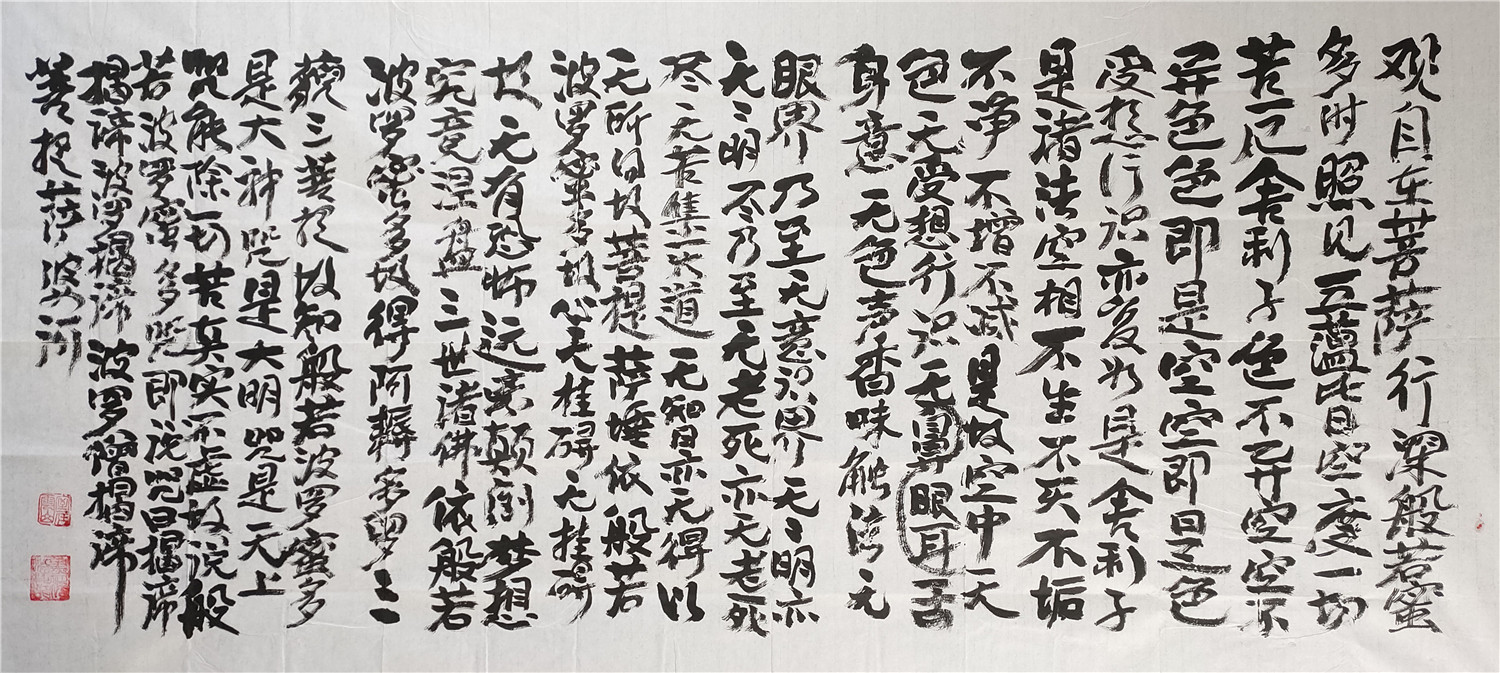 观自在菩萨行深般若蜜
多时照见五蕴皆空度一切
苦厄舍利子色不异空空不
异色色即是空空即是色
受想行识亦复如是舍利子
是诸法空相不生不灭不垢
不净不增不减是故空中无
色无受想行识无鼻眼耳舌
身意无色声香味触法无
眼界乃至无意识界无〻明亦
无〻明尽乃至无老死亦无老死
尽无苦集灭道无智亦无得以
无所得故菩提萨埵依般若
波罗蜜多故心无挂碍无挂碍
故无有恐怖远离颠倒梦想
究竟涅盘三世诸佛依般若
波罗蜜多故得阿耨多罗三
藐三菩提故知般若波罗蜜多
是大神咒是大明咒是无上
咒能除一切苦真实不虚故说般
若波罗蜜多咒即说咒曰揭谛
揭谛波罗揭谛波罗僧揭谛
菩提萨婆诃